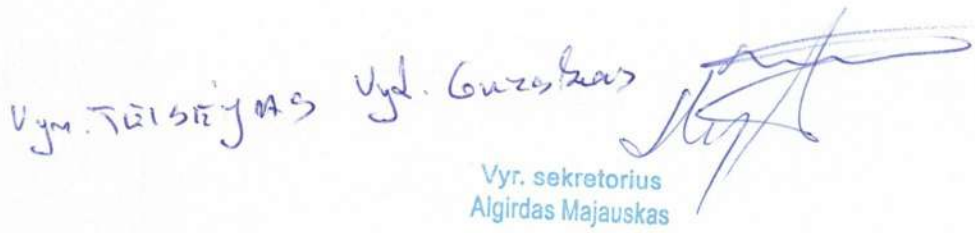 Vyr. TEISĖJAS Vyd.
Vyr. sekretorius
Algirdas Majauskas